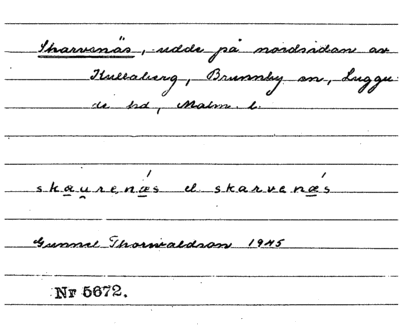 Skarvenäs, udde på nordsidan av
Kullaberg, Brunnby sn, Luggu-
de hd, Malm. l.
skau̯renæ´s el skarvenæ´s
Gunnel Thorwaldson 1945
Nr 5672.